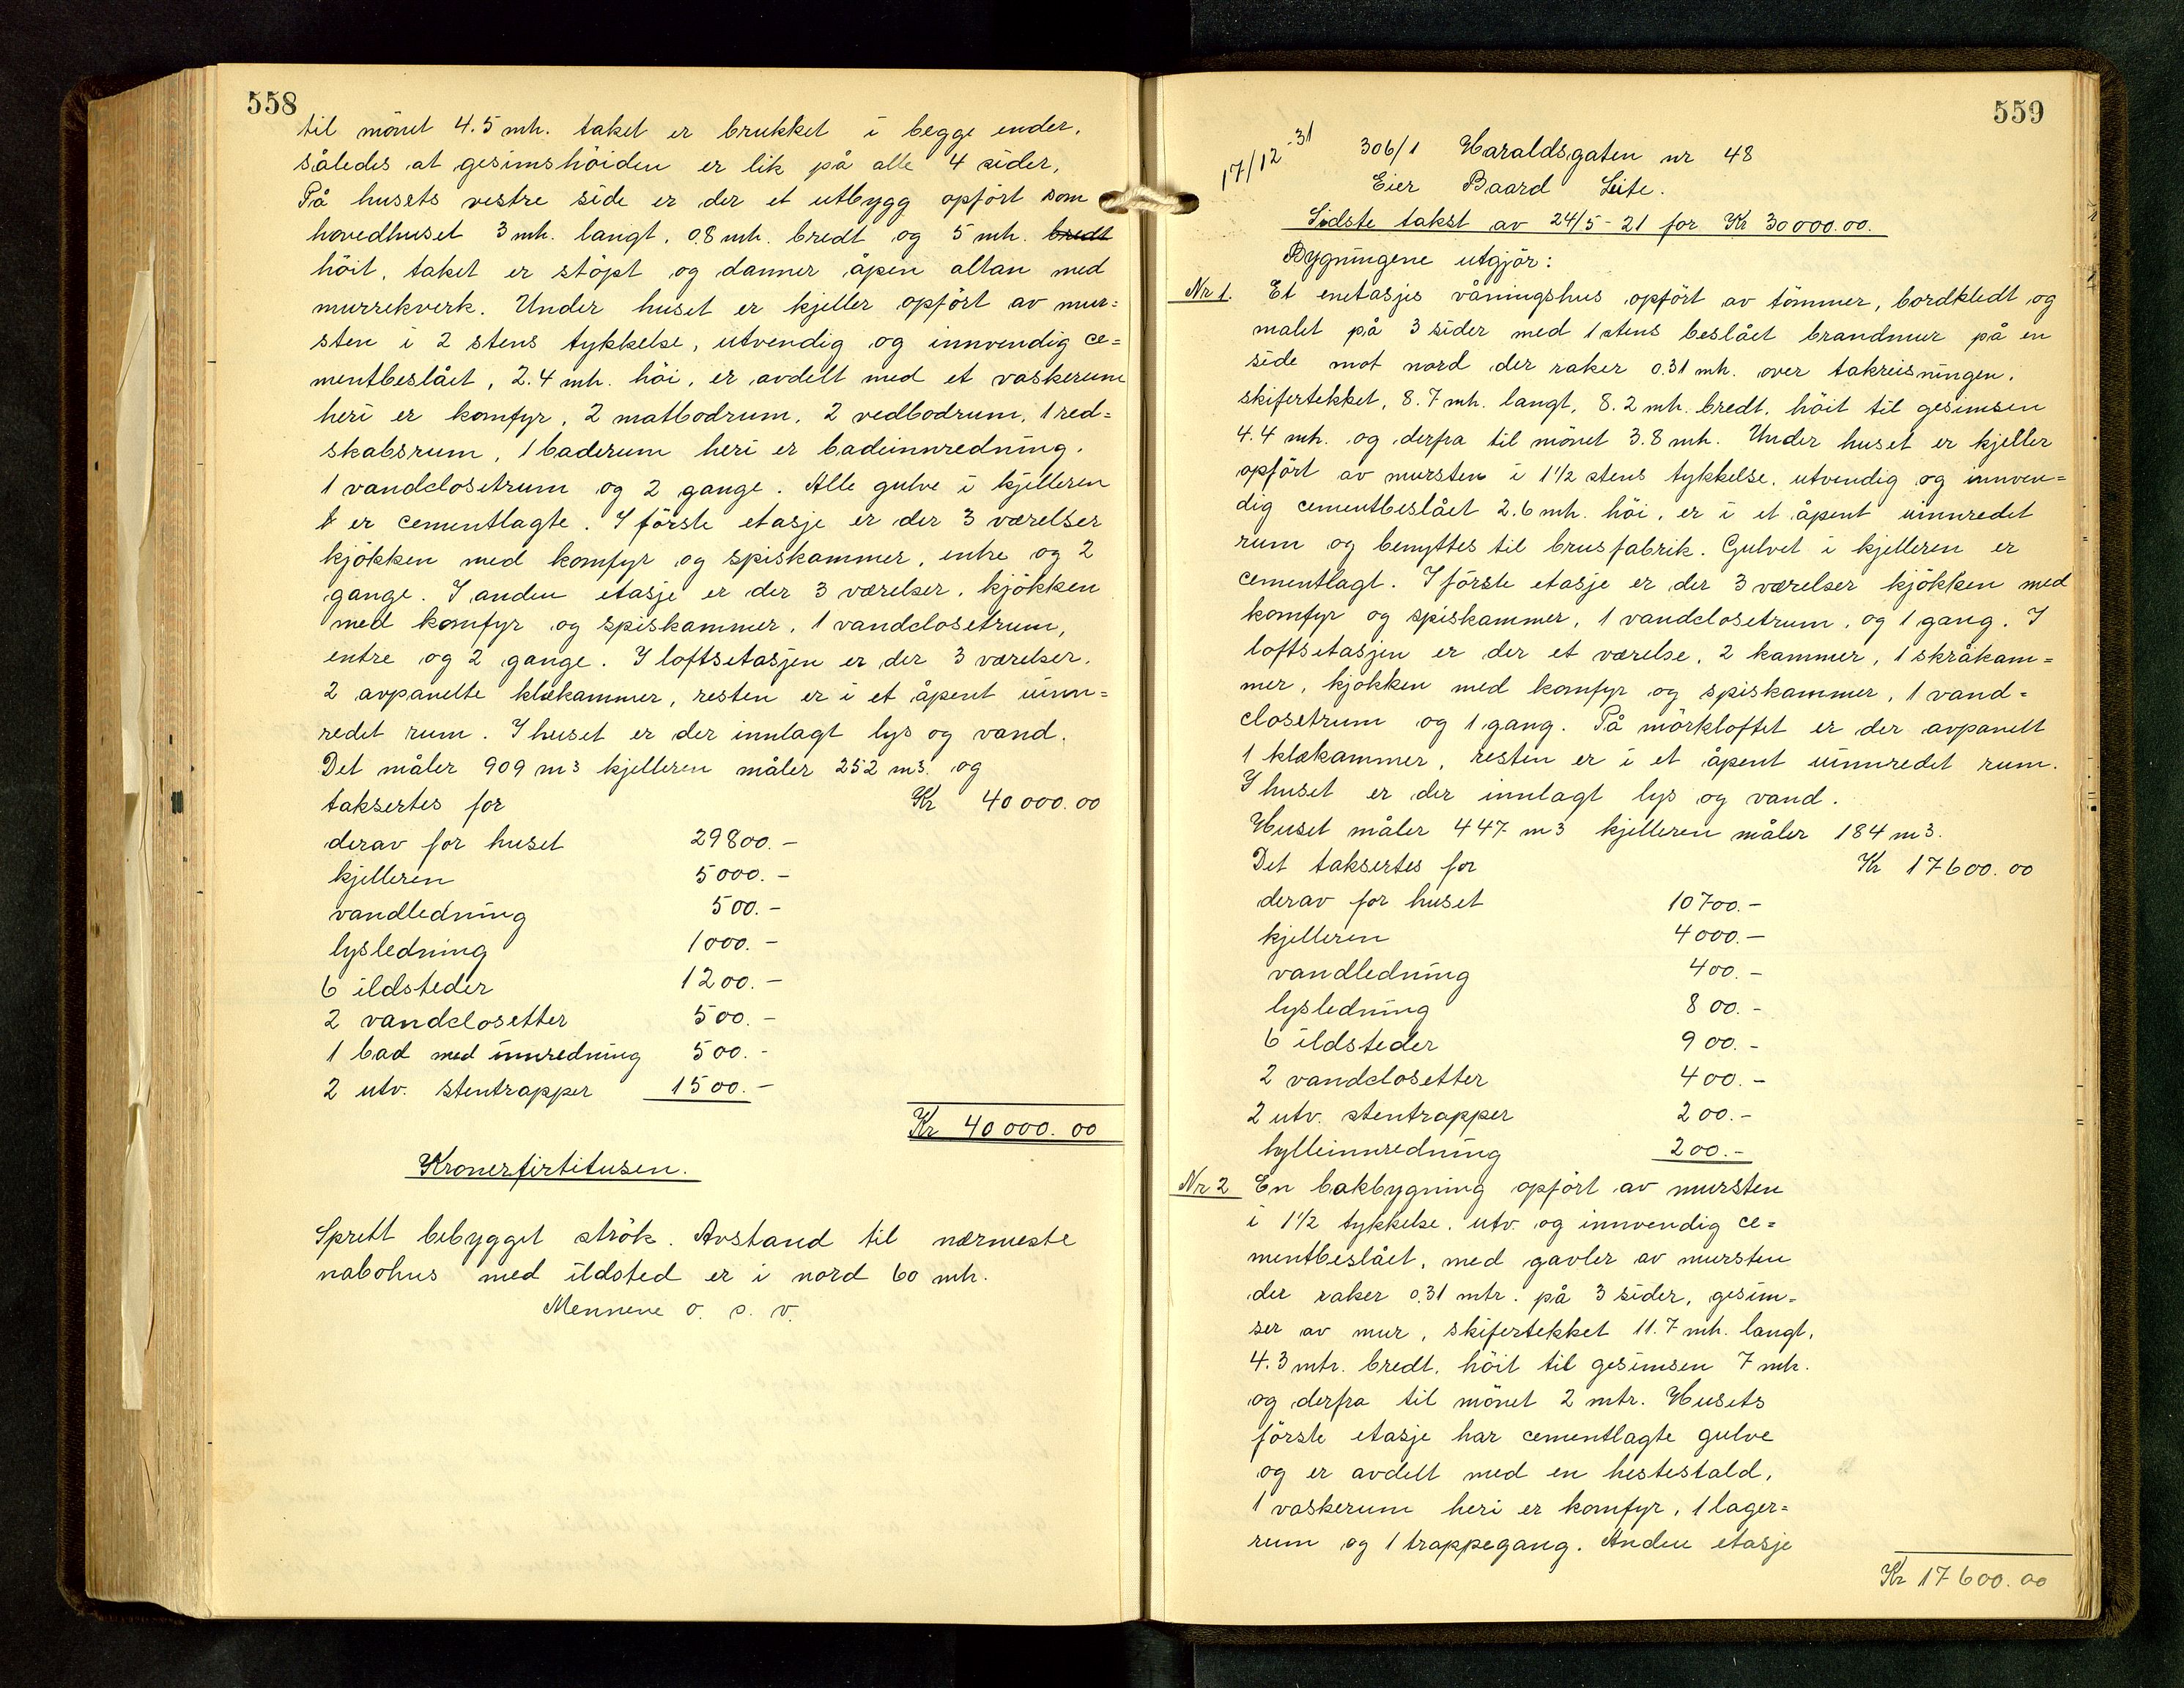 558
til mönet 4.5 mtr. taket er brukket i begge ender,
således at gesimshöiden er lik på alle 4 sider,
På husets vestre side er der et utbygg opfört som
hovedhuset 3 mtr. langt, 0.8 mtr. bredt og 5 mtr. bredt
höit, taket er stöpt og danner åpen altan med
murrekverk. Under huset er kjeller opfört av mur=
sten i 2 stens tykkelse, utvendig og innvendig ce=
mentbeslået, 2.4 mtr. höi, er avdelt med et vaskerum
heri er komfyr, 2 matbodrum, 2 vedbodrum, 1 red=
skabsrum, 1 baderum heri er badeinnredning,
1 vandclosetrum og 2 gange. Alle gulve i kjelleren
er cementlagte. I förste etasje er der 3 værelser
kjökken med komfyr og spiskammer, entre og 2
gange. I anden etasje er der 3 værelser, kjökken
med komfyr og spiskammer, 1 vandclosetrum,
entre og 2 gange. I loftsetasjen er der 3 værelser,
2 avpanelte klækammer, resten er i et åpent uinn=
redet rum. I huset er der innlagt lys og vand.
Det måler 909 m3 kjelleren måler 252 m3. og
taksertes for Kr 40 000.00
derav for huset 29800.-
kjelleren 5000.-
vandledning 500.-
lysledning 1000.-
6 ildsteder 1200.-
2 vandclosetter 500.-
1 bad med innredning 500.-
2 utv. stentrapper 1500.-
Kr 40 000.00
Kronerfirtitusen.
Spredt bebygget strök. Avstand til nærmeste
nabohus med ildsted er i nord 60 mtr.
Mennene o. s. v.
559
17/12-31 306/1 Haraldsgaten nr 48
Eier Baard Leite.
Sidste takst av 24/5-21 for Kr 30000.00.
Bygningene utgjör:
Nr 1. Et enetasjes våningshus opfört av tömmer, bordkledt og
malet på 3 sider med 1 stens beslået brandmur på en
side mot nord der raker 0.31 mtr. over takreisningen,
skifertekket, 8.7 mtr. langt, 8.2 mtr. bredt, höit til gesimsen
4.4 mtr. og derfra til mönet 3.8 mtr. Under huset er kjeller
opfört av mursten i 1½ stens tykkelse, utvendig og innven=
dig cementbeslået 2.6 mtr. höi, er i et åpent uinnredet
rum og benyttes til brusfabrik. Gulvet i kjelleren er
cementlagt. I förste etasje er der 3 værelser kjökken med
komfyr og spiskammer, 1 vandclosetrum, og 1 gang. I
loftsetasjen er der et værelse, 2 kammer, 1 skråkam=
mer, kjökken med komfyr og spiskammer, 1 vand=
closetrum og 1 gang. På mörkloftet er der avpanelt
1 klækammer, resten er i et åpent uinnredet rum.
I huset er der innlagt lys og vand.
Huset måler 447 m3 kjelleren måler 184 m3.
Det taksertes for Kr 17600.00
derav for huset 10700.-
kjelleren 4000.-
vandledning 400.-
lysledning 800.-
6 ildsteder 900.-
2 vandclosetter 400.-
2 utv. stentrapper 200.-
hylleinnredning 200.-
Nr 2 En bakbygning opfört av mursten
i 1½ tykkelse, utv. og innvendig ce=
mentbeslået, med gavler av mursten
der raker 0.31 mtr. på 3 sider, gesim=
ser av mur, skifertekket 11.7 mtr. langt,
4.3 mtr. bredt, höit til gesimsen 7 mtr.
og derfra til mönet 2 mtr. Husets
förste etasje har cementlagte gulve
og er avdelt med en hestestald,
1 vaskerum heri er komfyr, 1 lager=
rum og 1 trappegang. Anden etasje
Kr 17600.00